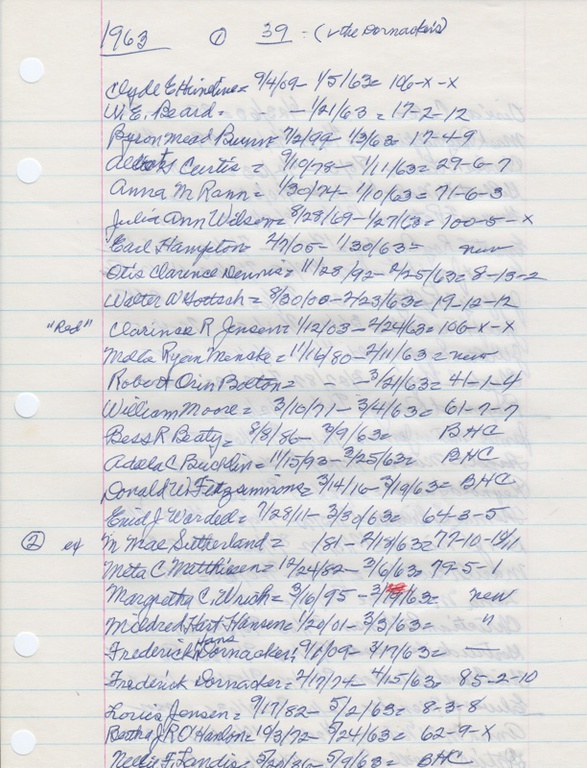 1963 ① 39 - (v the Dornacker's)
Clyde E Hindine = 9/4/09 - 1/5/63 = 106-x-x
W.E. Beard = - - 1/21/63 = 17-2-12
Byron Mead Bunn = 7/2/99 - 1/3/63 = 17-4-9
Curtis = 9/10/78 - 1/11/63 = 29-6-7
Anna M Rann = 1/30/74 - 1/10/63 = 71-6-3
Julia Ann Wilson = 8/28/69 - 1/27/63 = 100-5-x
Earl Hampton = 2/7/05 - 1/30/63 = new
Otis Clarence Dennis = 11/28/92 - 2/25/63 = 8-13-2
Walter W Gottsch = 8/30/00 - 2/23/63 = 19-12-12
"Red" Clarence R Jensen = 1/12/03 - 2/24/63 = 106-x-x
Ryan Menske = 11/16/80 - 2/11/63 = new
Robert Orin Bolton = - - 3/21/63 = 41-1-4
William Moore = 3/10/71 - 3/4/63 = 61-7-7
Bess R Beaty = 8/8/86 - 3/9/63 = BHC
Adela C Bucklin = 11/15/93 - 3/25/63 = BHC
Donald W Fitzsimmons = 3/14/16 - 3/19/63 = BHC
Enid J Wardell = 7/28/11 - 3/30/63 = 64-3-5
② ex M Mae Sutherland = /81 - 2/18/63 = 77-10-
Meta C Matthiesen = 12/24/82 - 3/6/63 = 79-5-1
Margretha C. Wriedt = 3/16/95 - 3/19/63 = new
Mildred Hart Hansen = 1/20/01 - 3/3/63 = "
Frederick Hans Dornacker = 9/6/09 - 3/17/63 = —
Frederick Dornacker = 2/17/74 - 4/15/63 = 85-2-10
Louis Jensen = 9/17/82 - 5/2/63 = 8-3-8
Bertha J.R. O'Hanlon = 1/3/72 - 5/24/63 = 62-9-x
Nellie F. Landis = 5/20/86 - 5/9/63 = BHC